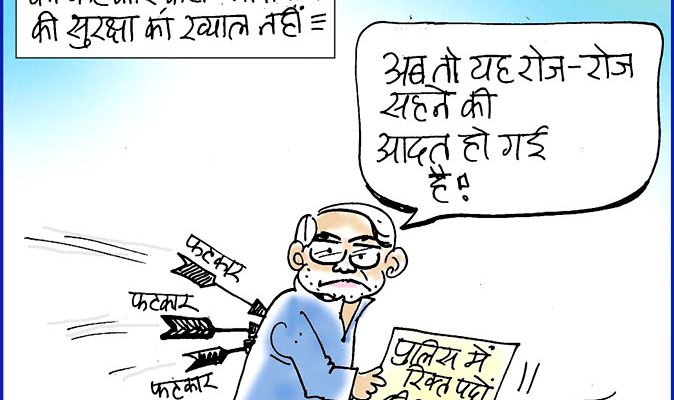 की सुरक्षा का ख्याल नहीं
अब तो यह रोज-रोज
सहने की
आदत हो गई
है!
फटकार
फटकार
फटकार
पुलिस में
रिक्त पदों